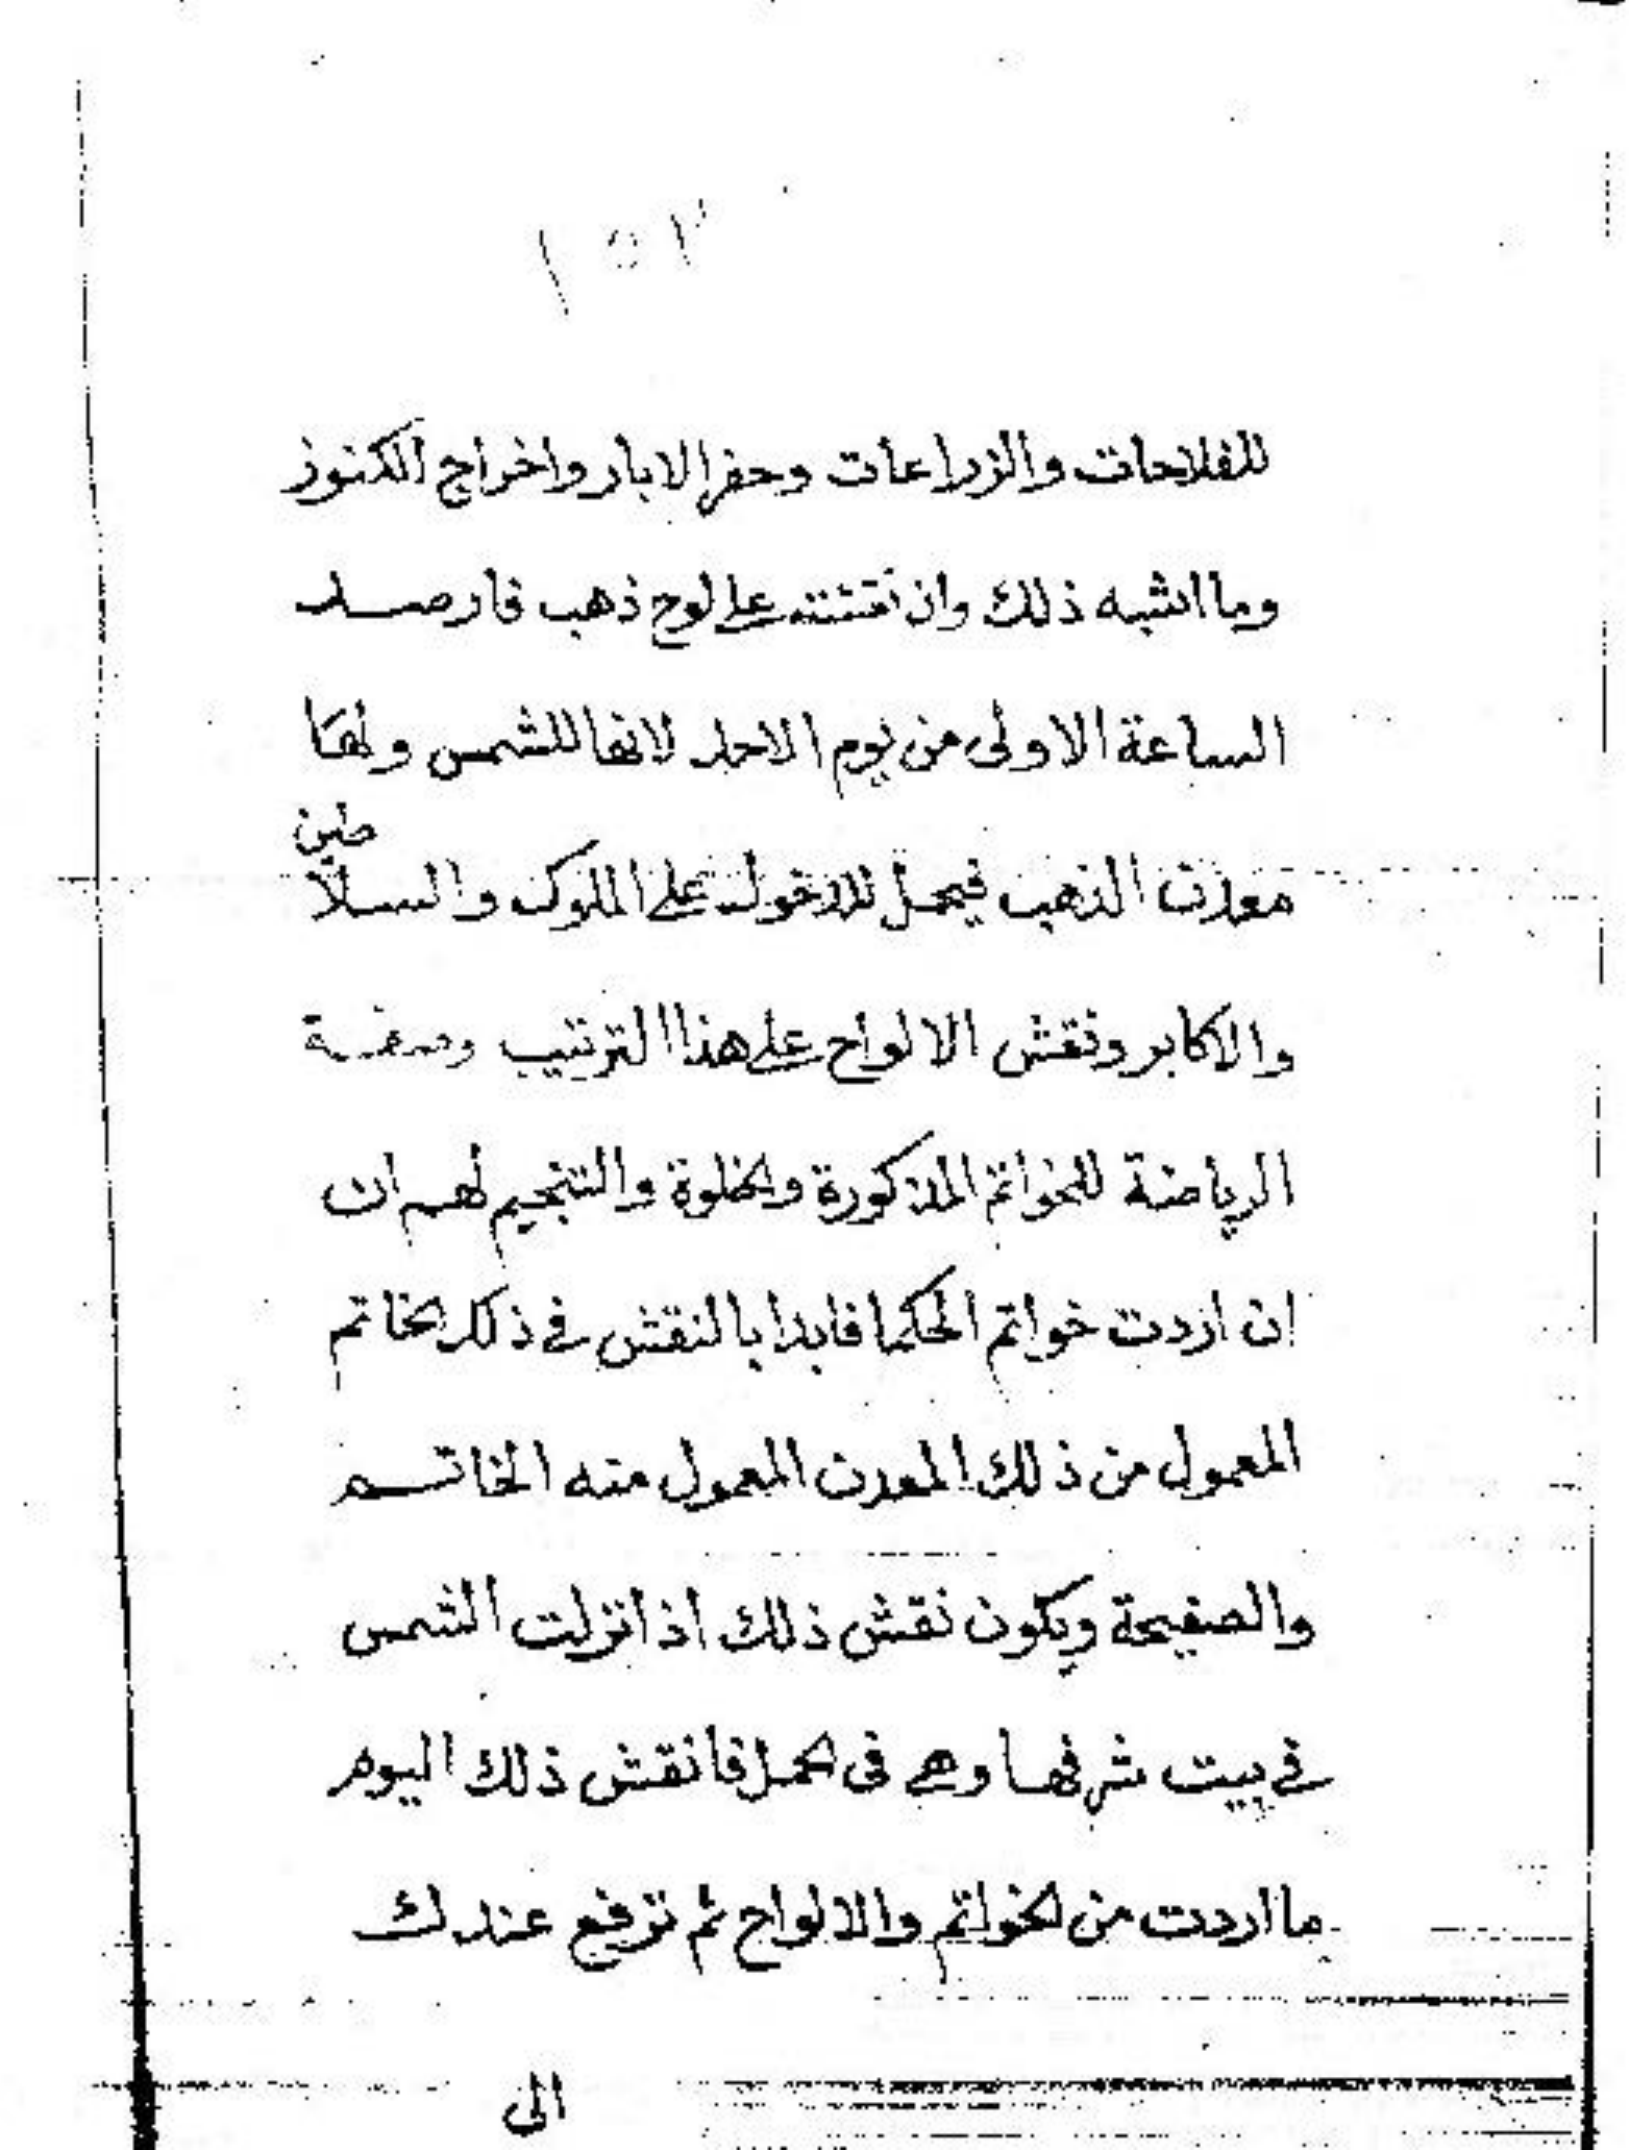 للفلاحات والزراعات وحفر الابار واخراج الكنوز
وما اشبه ذلك وان نقشته على لوح ذهب فارصد
الساعة الاولى من يوم الاحد لانها للشمس ولها
معدن الذهب فيحمل للدخول على الملوك والسلاطين
والاكابر ونقش الالواح على هذا الترتيب وصفة
الرياضة للخواتم المذكورة والخلوة والتنجيم لهم ان
ان اردت خواتم الحكما فابدا بالنقش في ذلك الخاتم
المعمول من ذلك المعدن المعمول منه الخاتم
والصفيحة ويكون نقش ذلك اذا نزلت الشمس
في بيت شرفها وهي في الحمل فانقش ذلك اليوم
ما اردت من الخواتم والالواح ثم ترفع عندك
الى